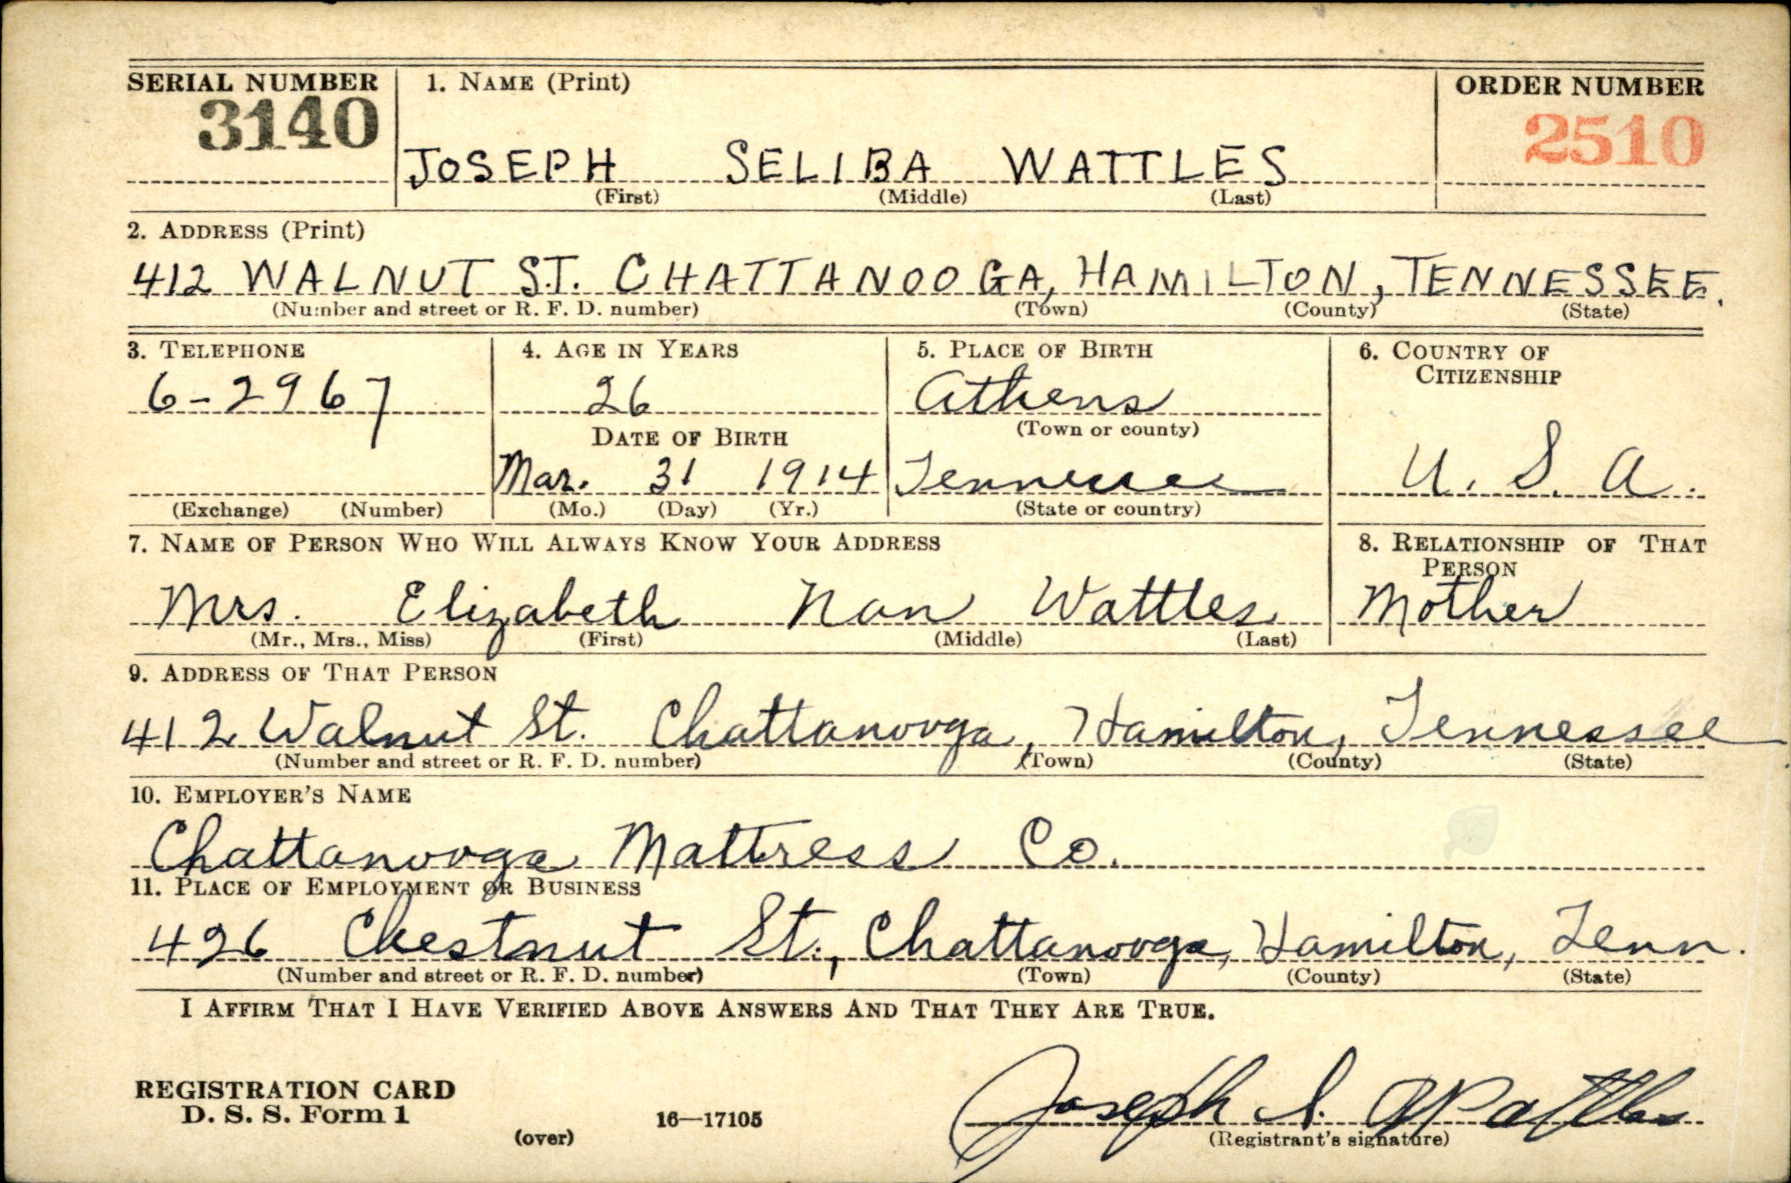 SERIAL NUMBER 1. NAME (Print) ORDER NUMBER
3140 2510
JOSEPH SELIBA WATTLES
(First) (Middle) (Last)
2. ADDRESS (Print)
412 WALNUT ST. CHATTANOOGA, HAMILTON, TENNESSEE.
(Number and street or R. F. D. number) (Town) (County) (State)
3. TELEPHONE 4. AGE IN YEARS 5. PLACE OF BIRTH 6. COUNTRY OF
CITIZENSHIP
6-2967 26 Athens
DATE OF BIRTH (Town or county)
Mar. 31 1914 Tennessee U. S. A.
(Exchange) (Number) (Mo.) (Day) (Yr.) (State or country)
7. NAME OF PERSON WHO WILL ALWAYS KNOW YOUR ADDRESS 8. RELATIONSHIP OF THAT
PERSON
Mrs. Elizabeth Nan Wattles Mother
(Mr., Mrs., Miss) (First) (Middle) (Last)
9. ADDRESS OF THAT PERSON
412 Walnut St. Chattanooga, Hamilton, Tennessee
(Number and street or R. F. D. number) (Town) (County) (State)
10. EMPLOYER'S NAME
Chattanooga Mattress Co.
11. PLACE OF EMPLOYMENT OR BUSINESS
426 Chestnut St., Chattanooga, Hamilton, Tenn.
(Number and street or R. F. D. number) (Town) (County) (State)
I AFFIRM THAT I HAVE VERIFIED ABOVE ANSWERS AND THAT THEY ARE TRUE.
REGISTRATION CARD
D. S. S. Form 1 16—17105 Joseph S. Wattles
(over) (Registrant's signature)